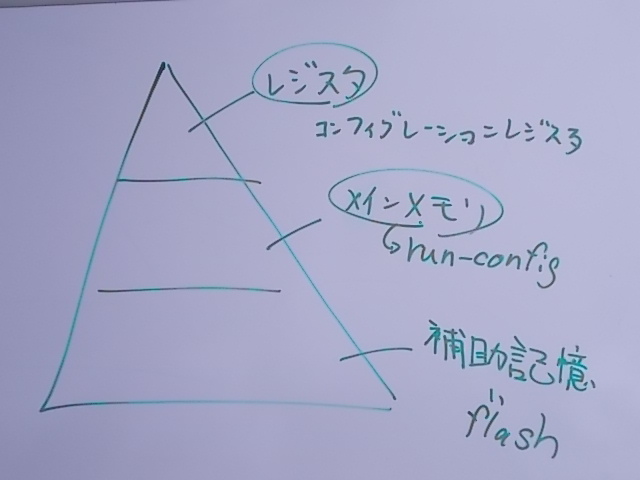 レジスタ
コンフィグレーションレジスタ
メインメモリ
↳run-config
補助記憶
〃
flash